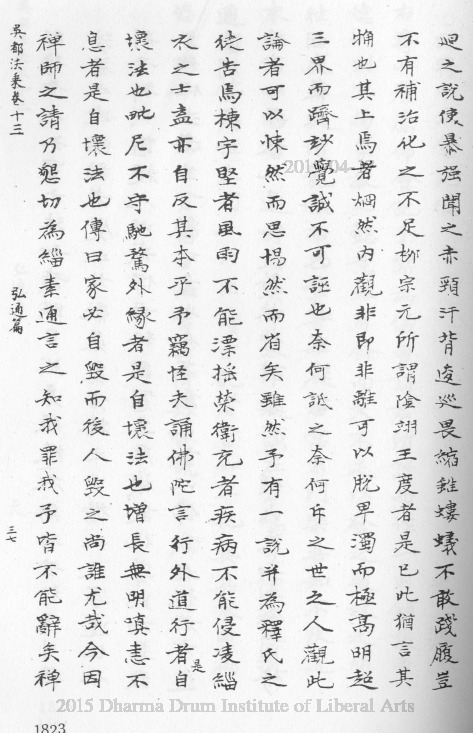 迴之說使暴强聞之赤頸汗背逡巡畏縮雖螻蟻不敢踐履豈
不有補治化之不足柳宗元所謂陰翊王度者是已此猶言其
觕也其上焉者烱然内觀非即非離可以脱卑濁而極高明超
三界而躋玅覺誠不可誣也奈何詆之奈何斥之世之人觀此
論者可以悚然而思惕然而省矣雖然予有一說并為釋氏之
徒告焉棟宇堅者風雨不能漂搖榮衛充者疾病不能侵凌緇
衣之士盍亦自反其本乎予竊怪夫誦佛陀言行外道行者是自
壞法也毗尼不守馳騖外緣者是自壞法也增長無明嗔恚不
息者是自壞法也傳曰家必自毀而後人毀之尚誰尤哉今因
禅師之請乃懇切為緇素通言之知我罪我予皆不能辭矣禅
吳都法乘卷十三
弘通篇
三七
2015 Dharma Drum Institute of Liberal Arts
1823